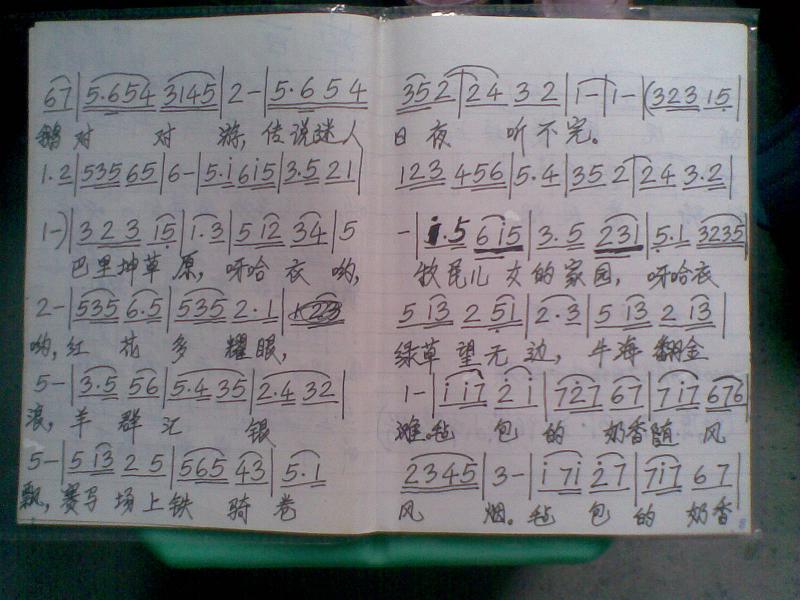 67|5.654 3145|2-|5.654
鹅对 对 游,传说谜人
1.2|535 65|6-|5.i6i5|3.5 21|
1-)|323 i5|1.3|5 12 34|5
巴里坤草原,呀哈衣哟,
2-|535 6.5|535 2.1|
哟,红花多耀眼,
5-|3.5 56|5.4 35|2.4 32|
浪,羊群汇 银
5-|5 i3 2 5|565 43|5.1
飘,赛马场上铁骑卷
352|24 32|1-|1-|(323 15|
日夜 听不完。
123 456|5.4|352|24 3.2|
-|i.5 6i5|3.5 231|5.1 3235|
牧民儿女的家园,呀哈衣
5 i3 2 5i|2.3|5 i3 2 i3|
绿草望无边,牛海翻金
1-|i i7 2 i|727 67|7i7 676|
滩。毡包的奶香随风
2345|3-|i7i 27|7i7 67|
风 烟。毡包的奶香
8